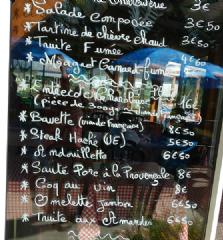 * Salade Composée 3€
* Tartine de chèvre chaud 3€50
* Truite Fumée
* Magret Canard fumé
* Entrecôte
(pièce de 300g viande Française) 16€
* Bavette (viande Française) 8€50
* Steak Haché (UE) 5€50
* Andouillette 6€50
* Sauté Porc à la Provençale 8€
* Coq au vin 8€
* Omelette Jambon 6€
* Truite aux Amandes 6€50